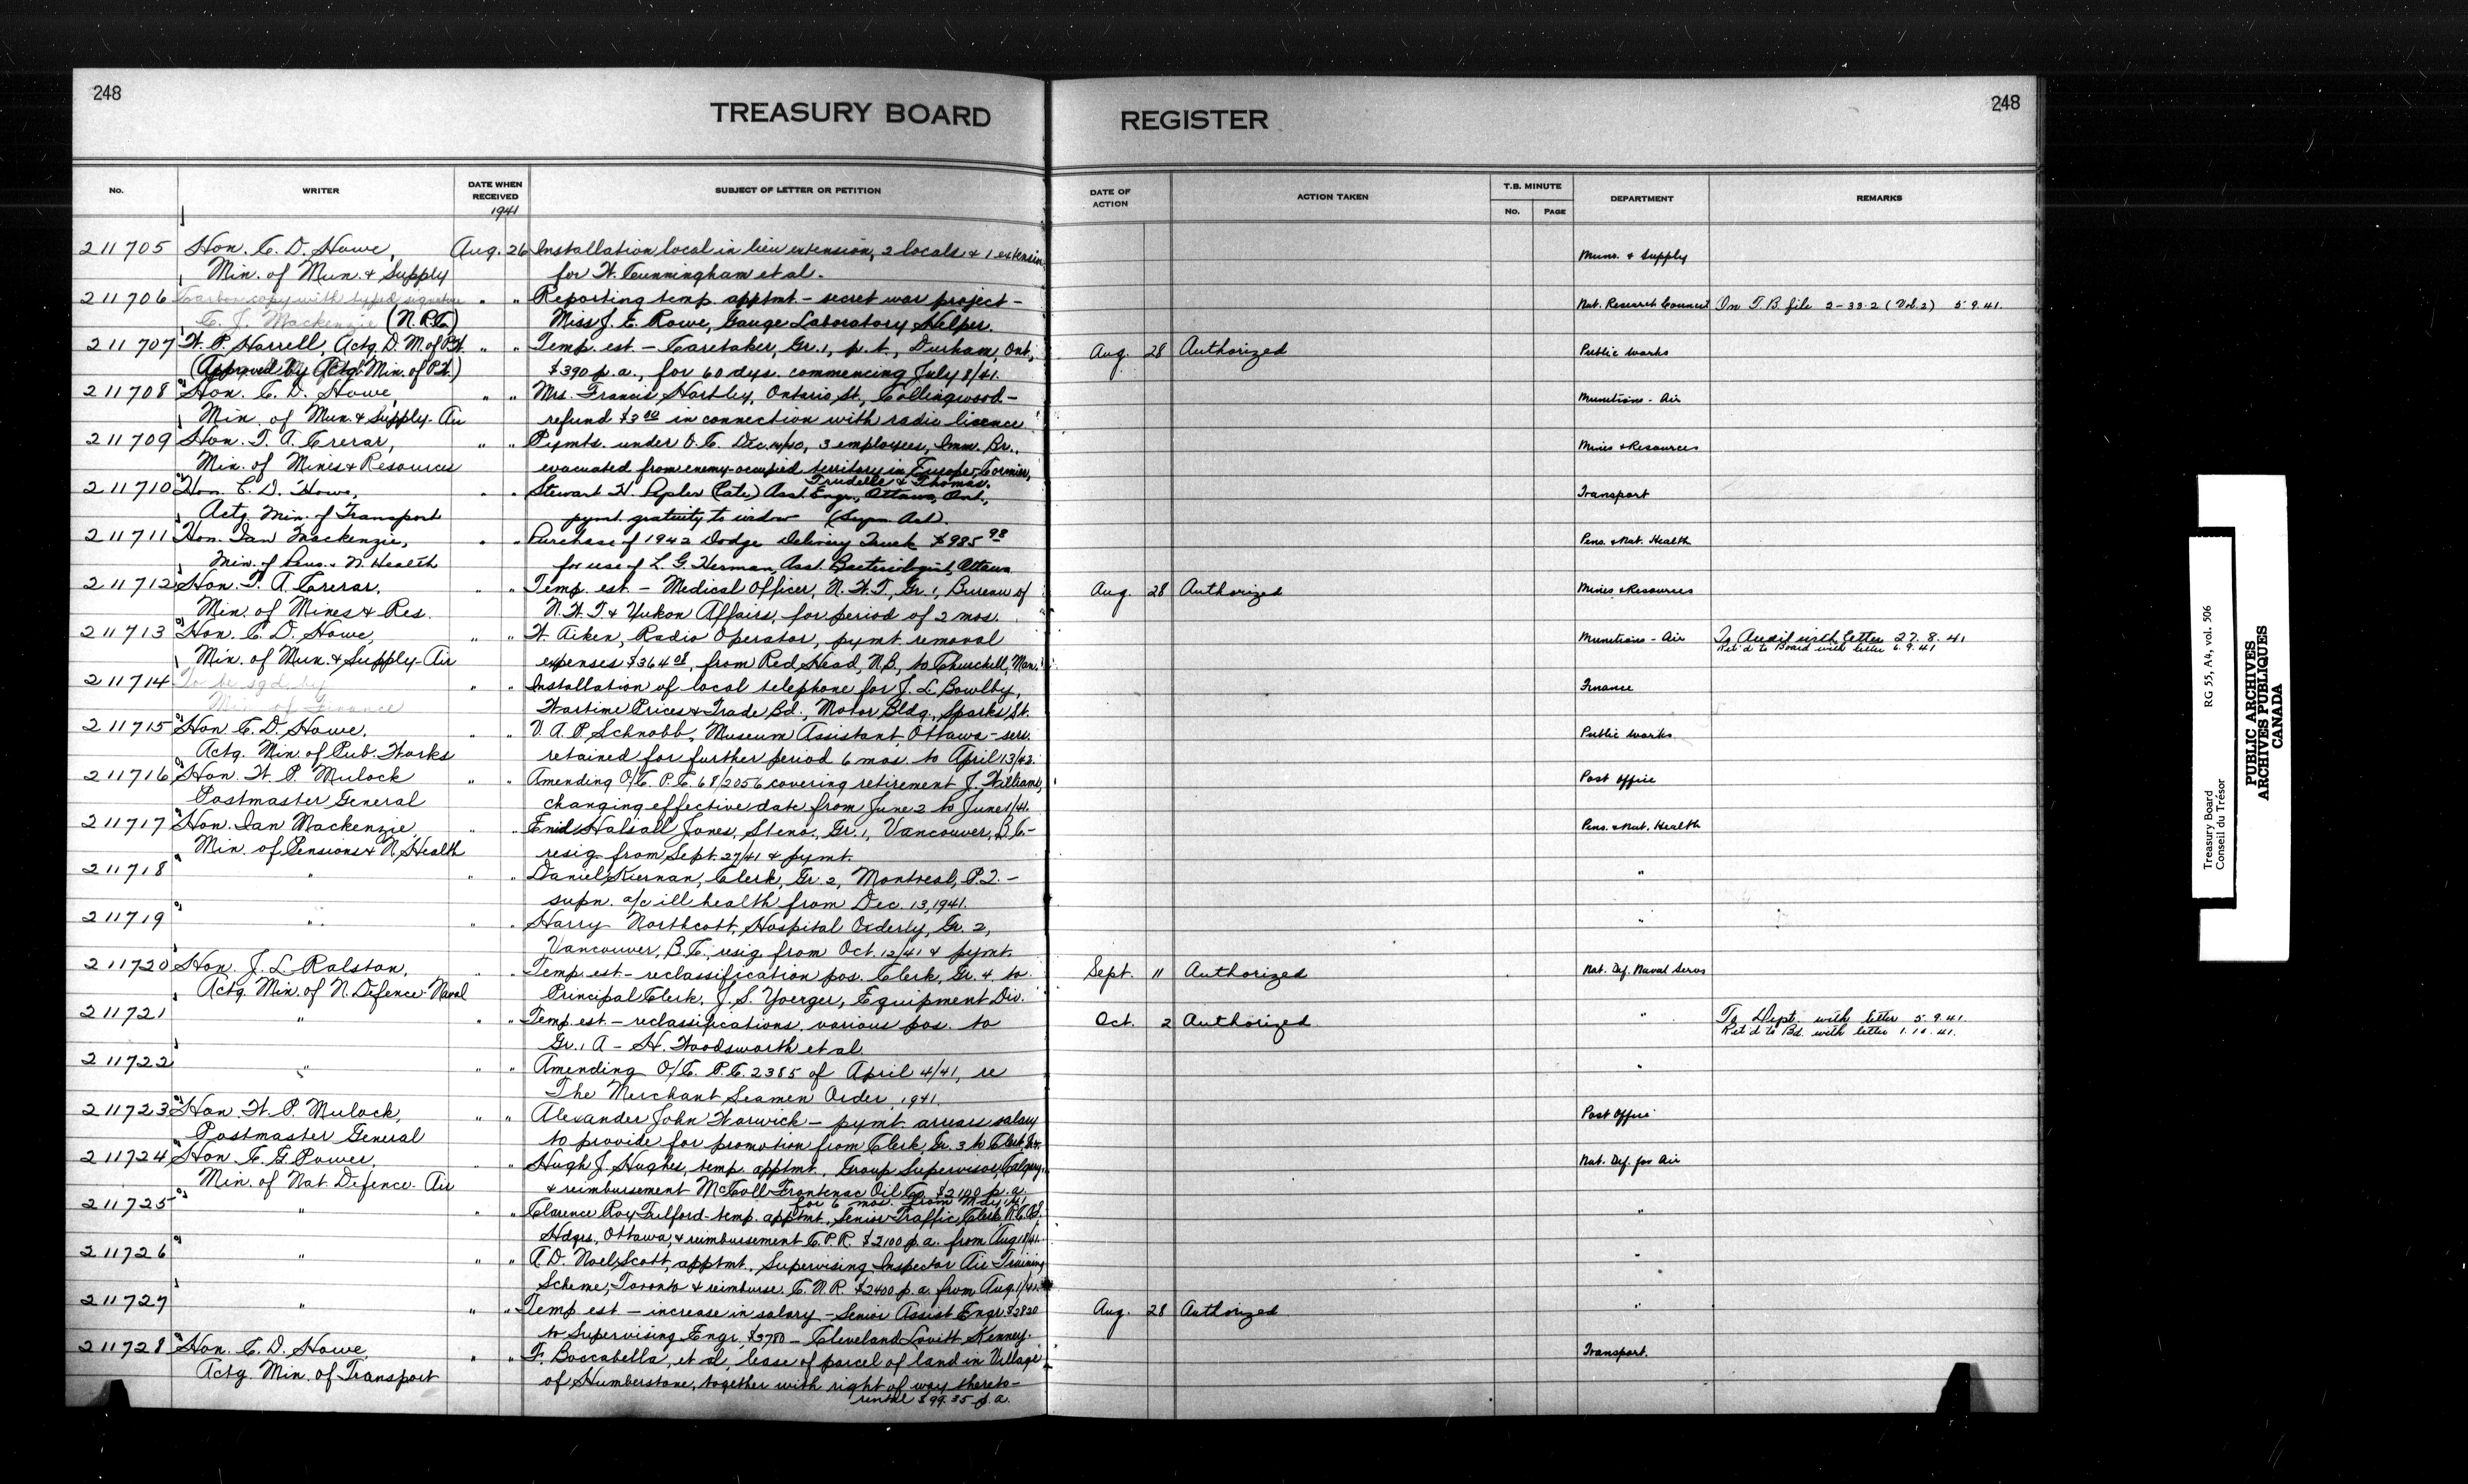 248
TREASURY BOARD REGISTER
248
No. WRITER DATE WHEN RECEIVED SUBJECT OF LETTER OR PETITION DATE OF ACTION ACTION TAKEN T.B. MINUTE No. PAGE DEPARTMENT REMARKS
1941
211705 Hon. C. D. Howe, Aug. 26 Installation local in lieu extension, 2 locals & 1 extension Muns. & Supply
Min. of Mun. & Supply for W. Cunningham et al.
211706 Carbon copy with typed signature " " Reporting temp. apptmt - secret war project - Nat. Research Council On T.B. file 2-33-2 (Vol. 2) 5.9.41.
C. J. Mackenzie (N.R.C.) Miss J. E. Rowe, Gauge Laboratory Helper.
211707 W. P. Harrell, Actg. D. M. of P.W. " " Temp. est. - Caretaker, Gr. 1, p.t., Durham, Ont., Aug. 28 Authorized Public Works
(Approved by Actg. Min. of P.W.) $390 p.a., for 60 dys. commencing July 8/41.
211708 Hon. C. D. Howe, " " Mrs. Francis Hartley, Ontario St., Collingwood - Munitions - Air
Min. of Mun. & Supply - Air refund $3.00 in connection with radio licence
211709 Hon. T. A. Crerar, " " Pymts. under O.C. Dec. 4/40, 3 employees, Imm. Br., Mines & Resources
Min. of Mines & Resources evacuated from enemy-occupied territory in Europe - Cormier,
Trudelle & Thomas.
211710 Hon. C. D. Howe, " " Stewart H. (late) Asst Engr., Ottawa, Ont., Transport
Actg. Min. of Transport pymt. gratuity to widow (Supn. Act).
211711 Hon. Ian Mackenzie, " " Purchase of 1942 Dodge Delivery Truck $985.98 Pens. & Nat. Health
Min. of Pens. & N. Health for use of L. G. Herman, Asst. Bacteriologist, Ottawa
211712 Hon. T. A. Crerar, " " Temp. est. - Medical Officer, N.W.T., Gr. 1, Bureau of Aug. 28 Authorized Mines & Resources
Min. of Mines & Res. N.W.T. & Yukon Affairs, for period of 2 mos.
211713 Hon. C. D. Howe, " " W. Aiken, Radio Operator, pymt removal Munitions - Air To Audit with letter 27.8.41
Min. of Mun. & Supply - Air expenses $364.08, from Red Head, N.B., to Churchill, Man. Ret'd to Board with letter 6.9.41
211714 To be sgd. by " " Installation of local telephone for J. L. Bowlby, Finance
Min. of Finance Wartime Prices & Trade Bd., Motor Bldg., Sparks St.
211715 Hon. C. D. Howe, " " V. A. P. Schnobb, Museum Assistant, Ottawa - serv. Public Works
Actg. Min. of Pub. Works retained for further period 6 mos. to April 13/42.
211716 Hon. W. P. Mulock " " Amending O/C. P.C. 68/2056 covering retirement J. Williams, Post Office
Postmaster General changing effective date from June 2 to June 1/41.
211717 Hon. Ian Mackenzie, " " Enid Halsall Jones, Steno., Gr. 1, Vancouver, B.C. - Pens. & Nat. Health
Min. of Pensions & N. Health resig. from Sept. 27/41 & pymt.
211718 " " " Daniel Kiernan, Clerk, Gr. 2, Montreal, P.Q. - "
supn. a/c ill health from Dec. 13, 1941.
211719 " " " Harry Northcott, Hospital Orderly, Gr. 2, "
Vancouver, B.C., resig. from Oct. 12/41 & pymt.
211720 Hon. J. L. Ralston, " " Temp. est. - reclassification pos. Clerk, Gr. 4 to Sept. 11 Authorized Nat. Def. Naval Servs
Actg. Min. of N. Defence - Naval Principal Clerk, J. S. Yoerger, Equipment Div.
211721 " " " Temp. est. - reclassifications, various pos. to Oct. 2 Authorized " To Dept. with letter 5.9.41.
Gr. 1 A - H. Woodsworth et al. Ret'd to Bd. with letter 1.10.41.
211722 " " " Amending O/C. P.C. 2385 of April 4/41, re "
The Merchant Seamen Order, 1941.
211723 Hon. W. P. Mulock, " " Alexander John Warwick - pymt. arrears salary Post Office
Postmaster General to provide for promotion from Clerk, Gr. 3 to Clerk, Gr. 4.
211724 Hon. C. G. Power, " " Hugh J. Hughes, temp. apptmt., Group Supervisor, Calgary, Nat. Def. for Air
Min. of Nat. Defence - Air & reimbursement McColl Frontenac Oil Co. $2100 p.a.
for 6 mos. from May 1/41
211725 " " " Clarence Roy Fulford - temp. apptmt., Senior Traffic Clerk, R.C.A.F. "
Hdqrs., Ottawa, & reimbursement C.P.R. $2100 p.a. from Aug 18/41.
211726 " " " A. D. Noel Scott, apptmt., Supervising Inspector Air Training "
Scheme, Toronto & reimburse. C.N.R. $2400 p.a. from Aug. 1/41.
211727 " " " Temp. est. - increase in salary - Senior Assist Engr. $2820 Aug. 28 Authorized "
to Supervising Engr. $3780 - Cleveland Lovitt Kenney.
211728 Hon. C. D. Howe " " F. Boccabella, et al, lease of parcel of land in Village Transport.
Actg. Min. of Transport of Humberstone, together with right of way thereto -
rental $99.35 p.a.
Treasury Board RG 55, A4, vol. 506
Conseil du Trésor
PUBLIC ARCHIVES
ARCHIVES PUBLIQUES
CANADA